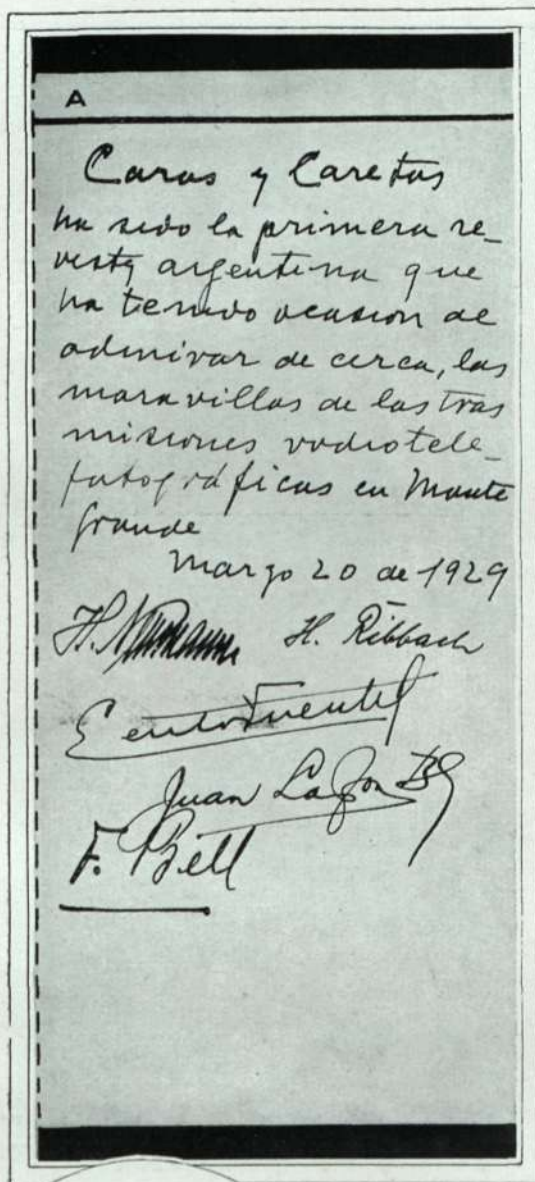 A
Caras y Caretas
ha sido la primera re-
vista argentina que
ha tenido ocasion de
admirar de cerca, las
maravillas de las tras
misiones radiotele-
fotográficas en Monte
Grande
Marzo 20 de 1929
H. Neumann H. Ribbach
Juan
F. Bell